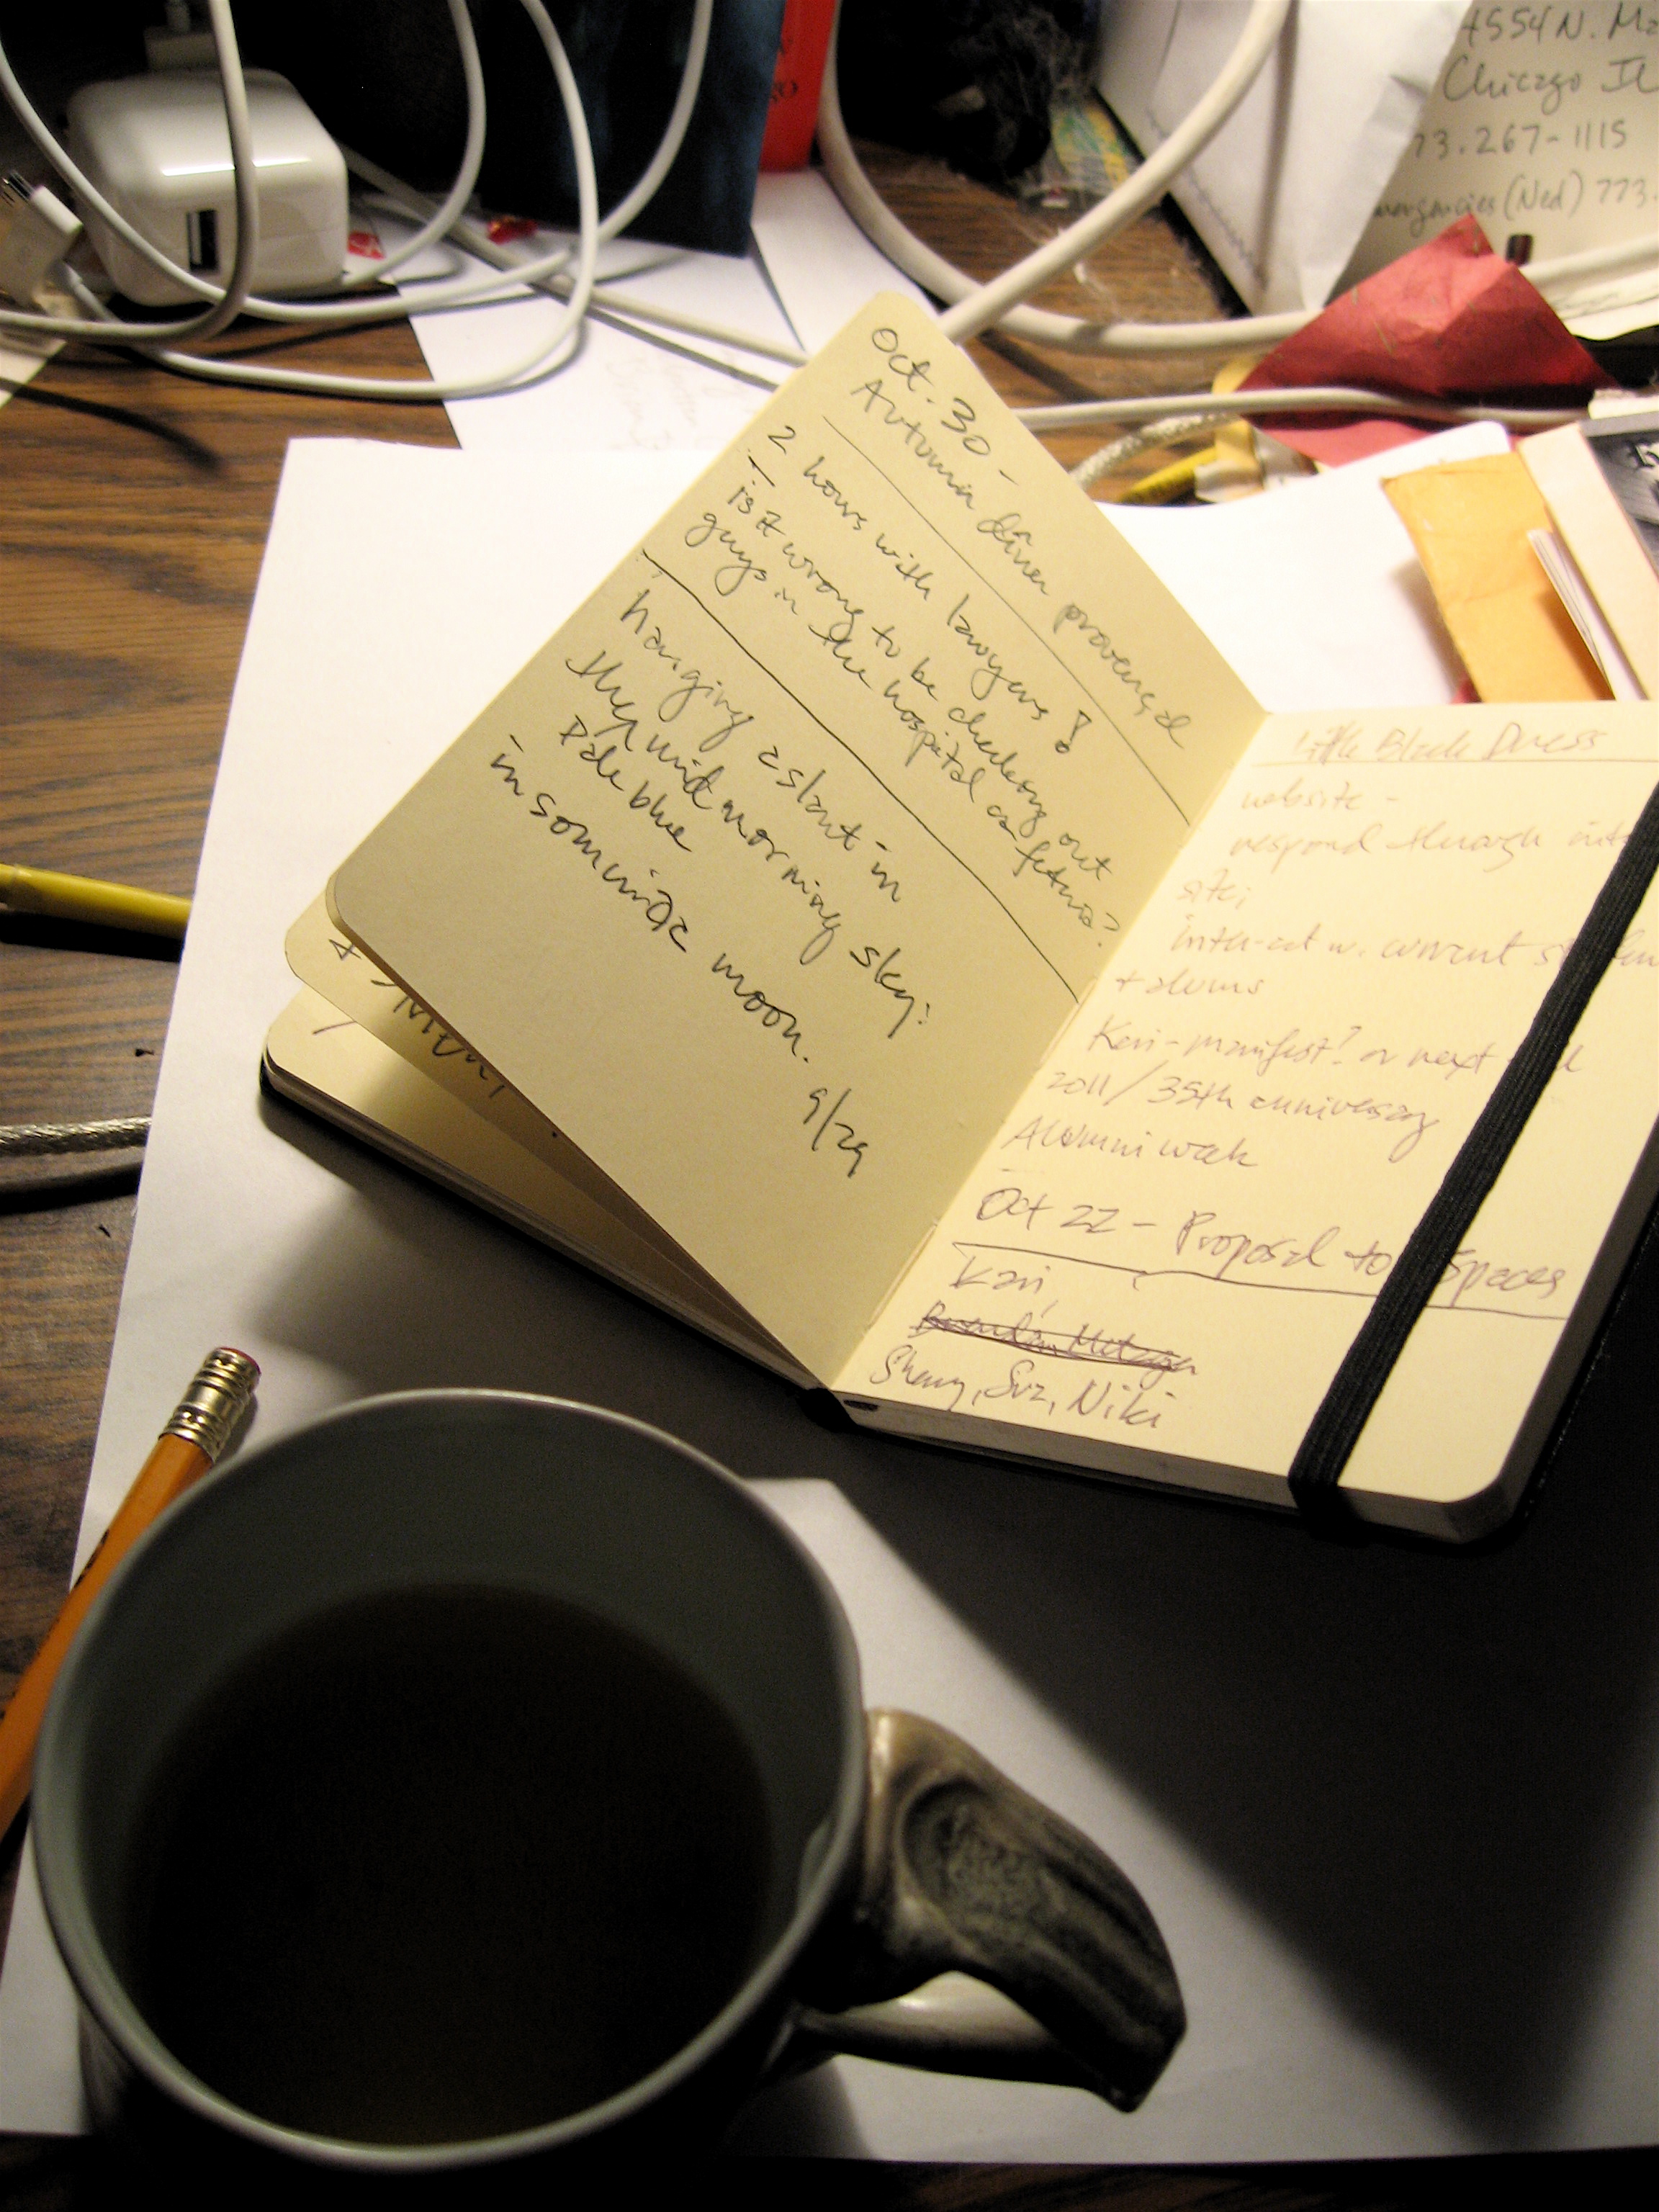 4554 N.
Chicago IL
73.267-1115
(Ned) 773.
Oct. 30 -
Autumn dîner provençal
2 hours with lawyers!
is it wrong to be checking out
guys in the hospital as a fetus?
hanging aslant in
the mid morning sky:
pale blue
insomniac moon.
9/29
Little Black Dress
website -
respond through
site;
inter-act w. current
+ alums
Keri - manifest? or next
2011/35th anniversary
Alumni week
Oct 22 - Proposal to Spaces
Keri,
Sherry, Suz, Niki